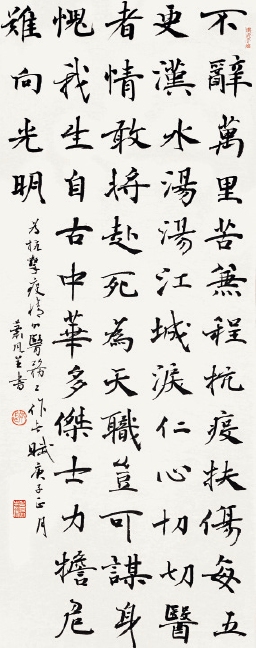 不辭萬里苦兼程抗疫扶傷每五
更漢水湯湯江城淚仁心切切醫
者情敢將赴死為天職豈可謀身
愧我生自古中華多傑士力擔危
難向光明
為抗擊疫情的醫務工作者賦庚子正月